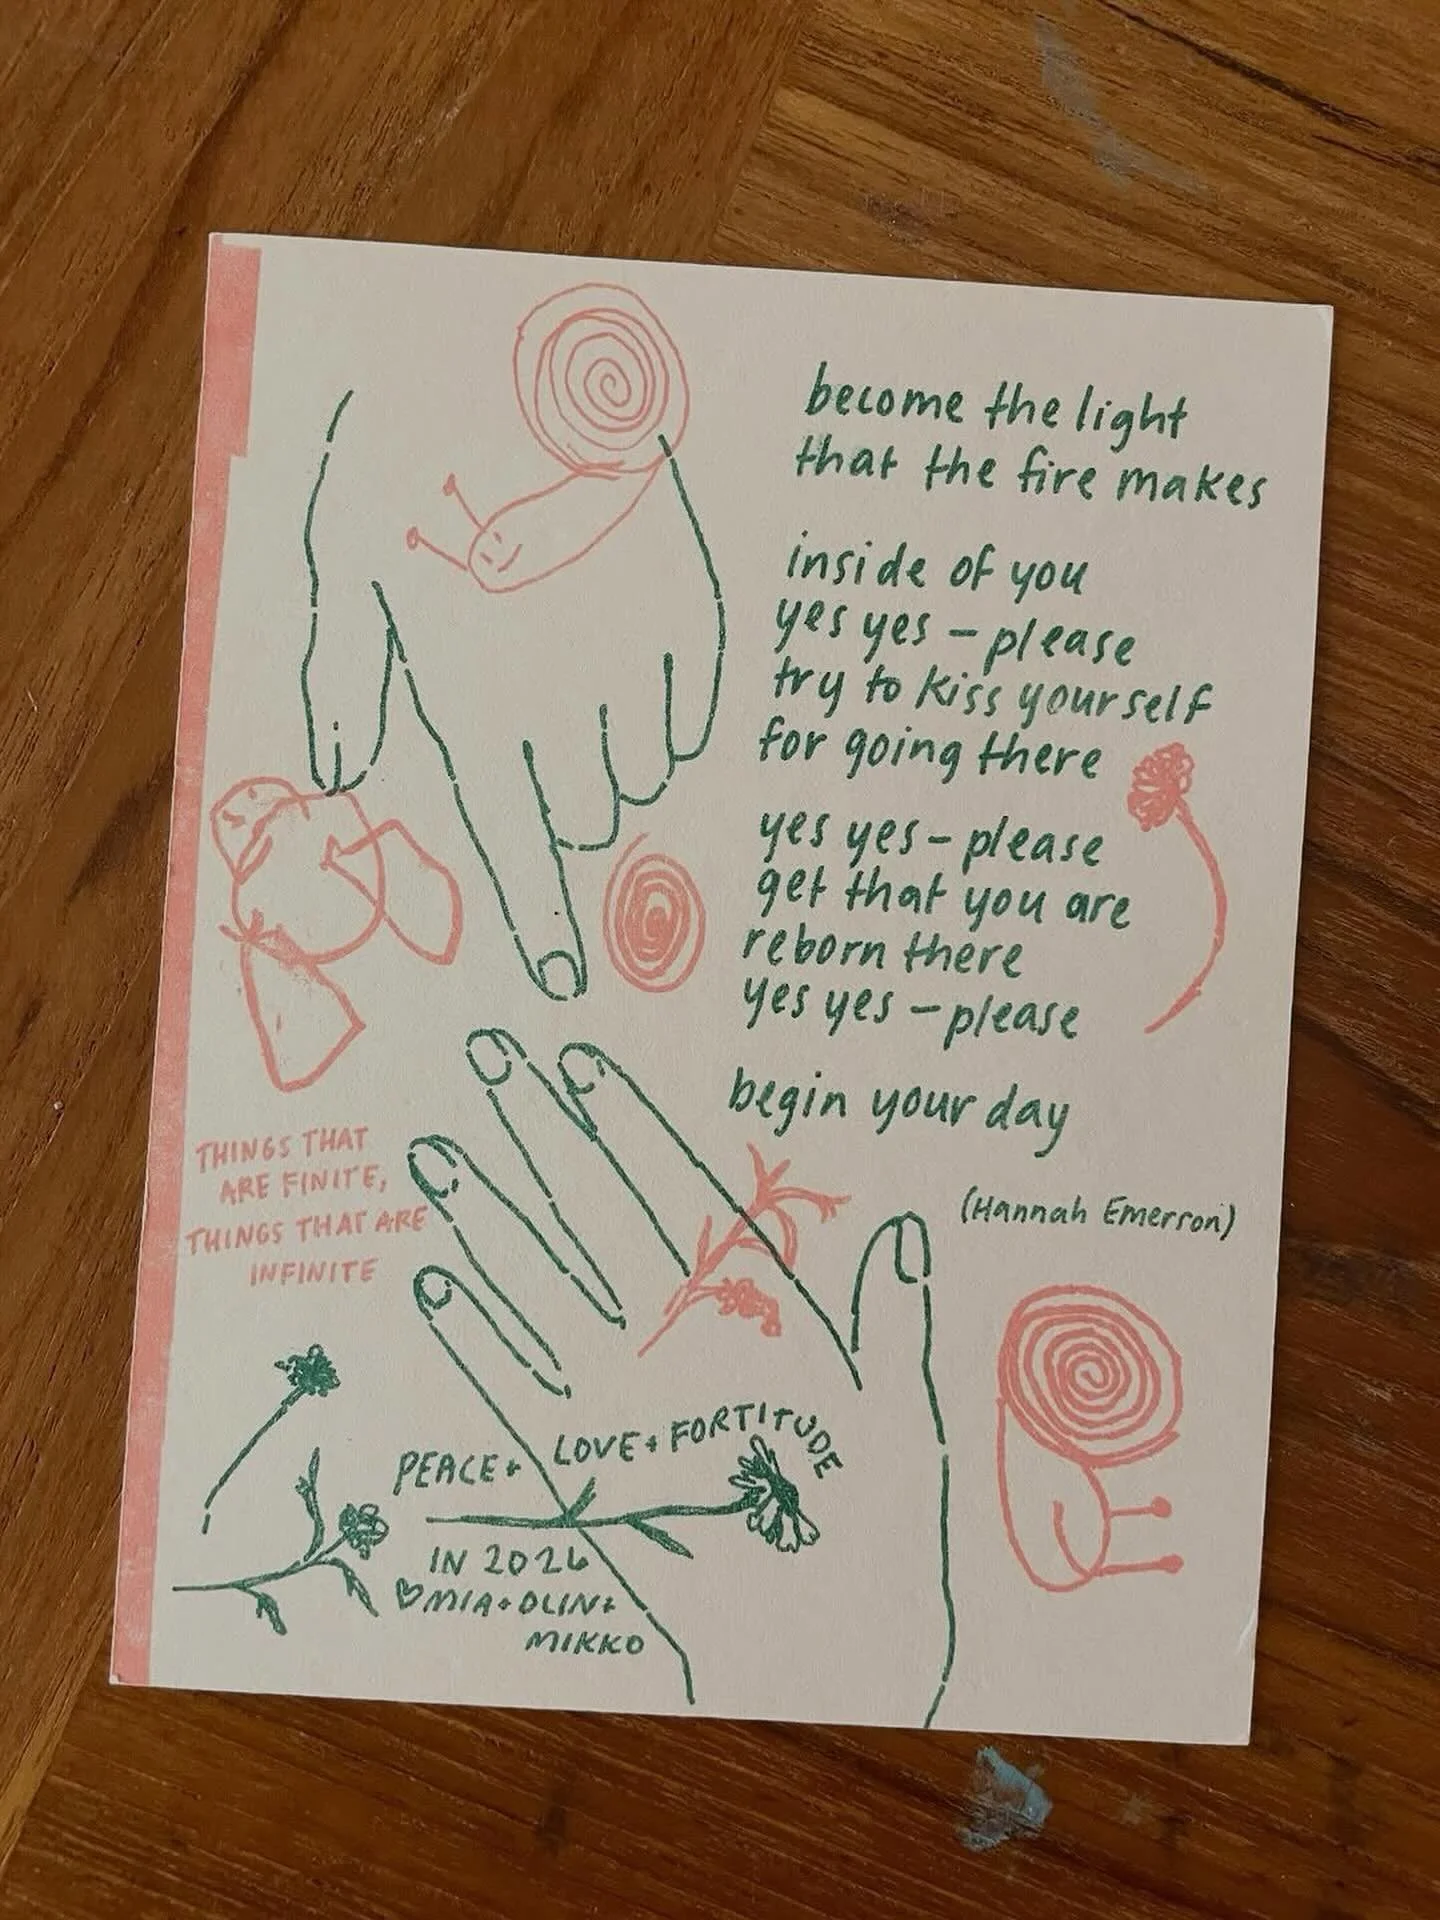 become the light
that the fire makes
inside of you
yes yes – please
try to kiss yourself
for going there
yes yes – please
get that you are
reborn there
yes yes – please
begin your day
(Hannah Emerson)
THINGS THAT
ARE FINITE,
THINGS THAT ARE
INFINITE
PEACE + LOVE + FORTITUDE
IN 2026
♡ MIA + OLIN +
MIKKO